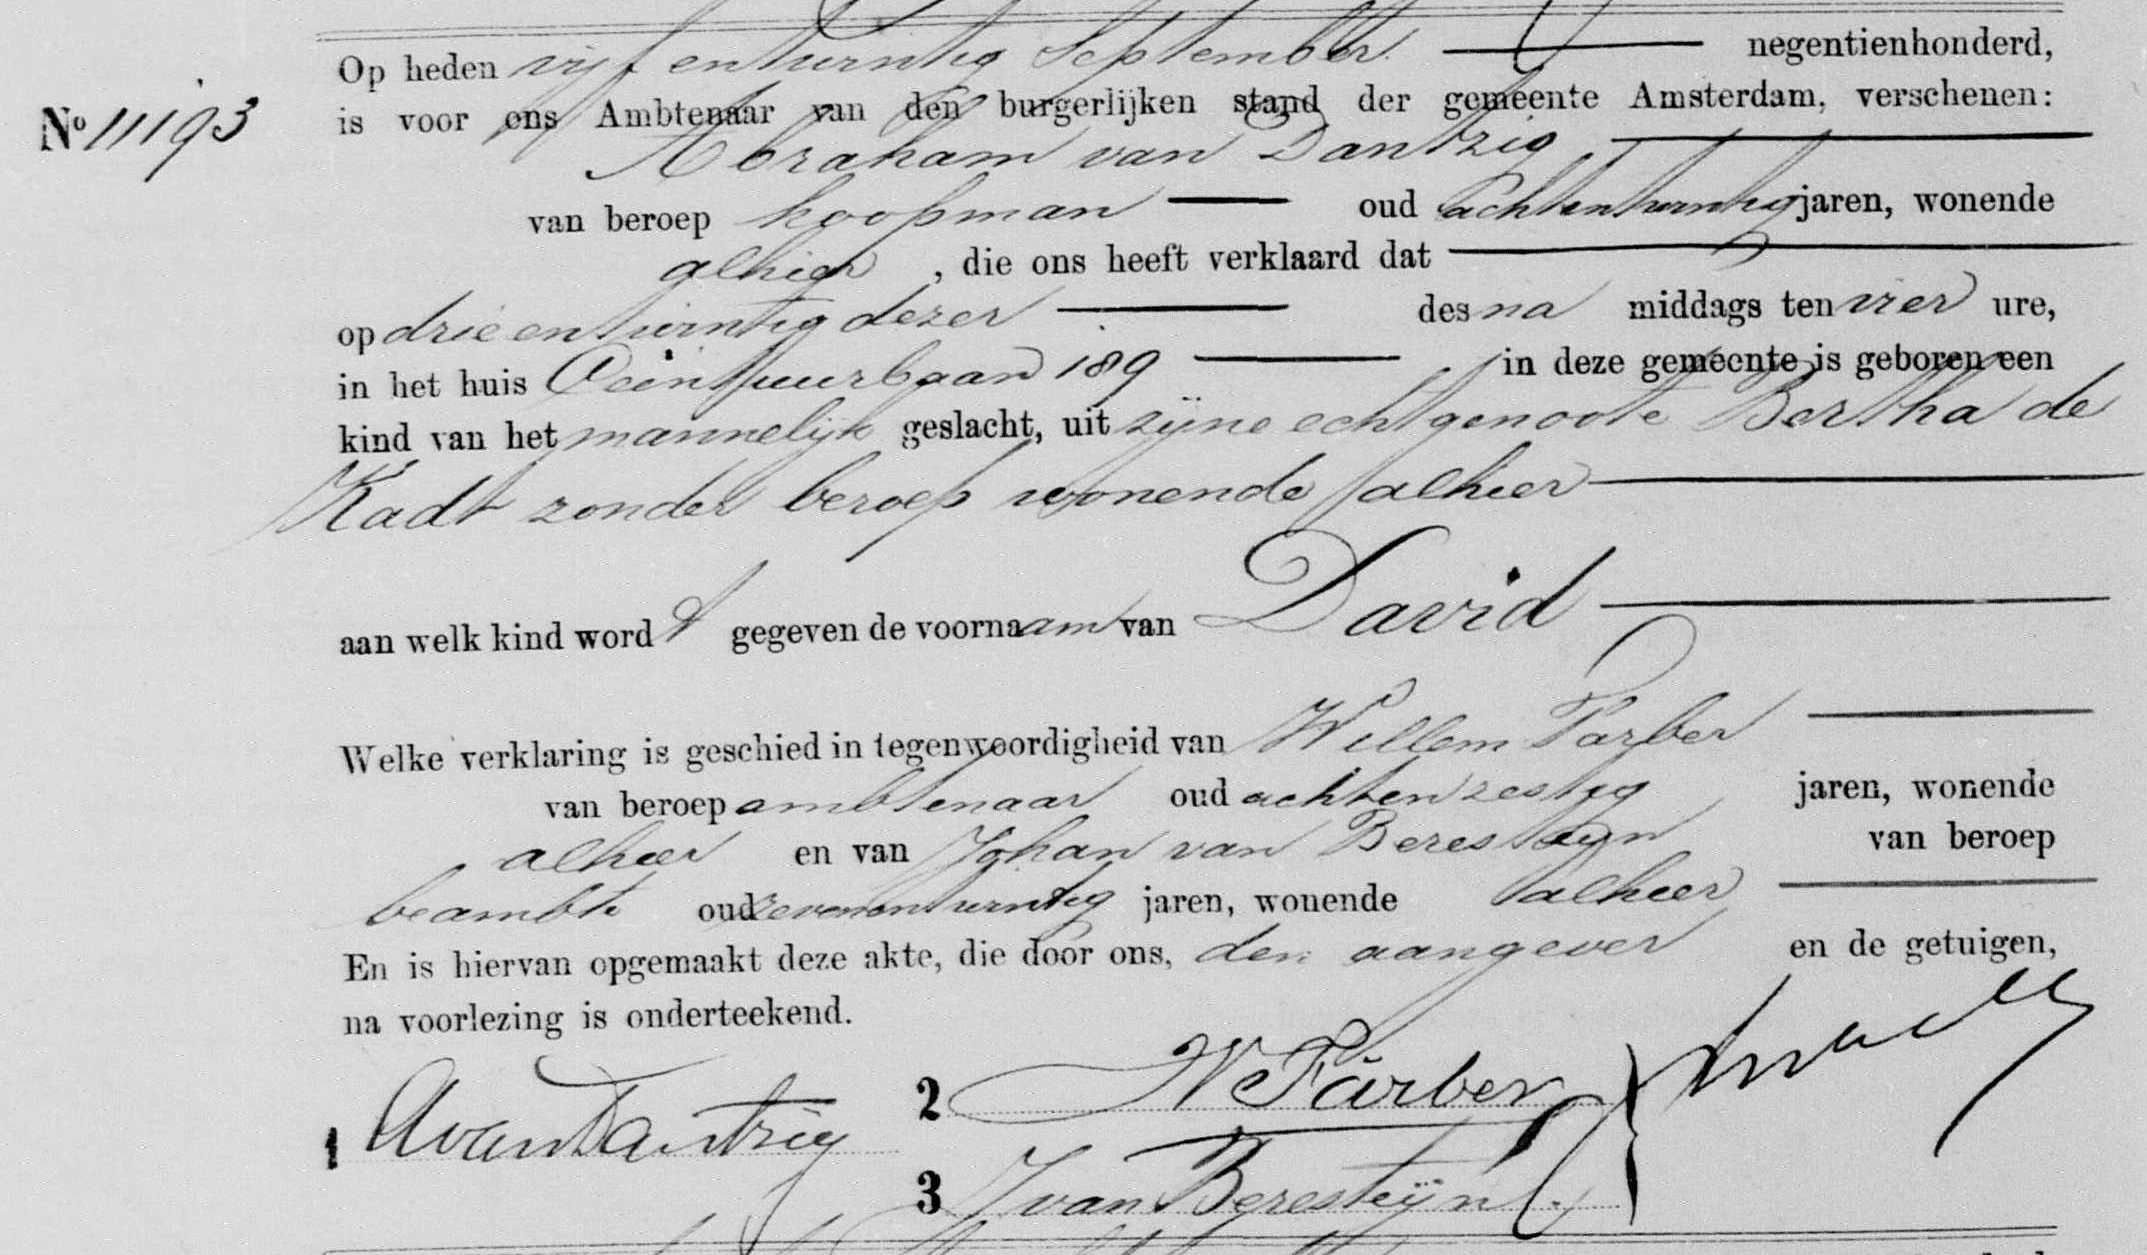 Op heden vijf en twintig September negentienhonderd,
No 11193 is voor ons Ambtenaar van den burgerlijken stand der gemeente Amsterdam, verschenen:
Abraham van Dantzig
van beroep koopman oud achtentwintig jaren, wonende
alhier, die ons heeft verklaard dat
op drie en twintig dezer des na middags ten vier ure,
in het huis Ceintuurbaan 189 in deze gemeente is geboren een
kind van het mannelijk geslacht, uit zijne echtgenoote Bertha de
Kadt zonder beroep wonende alhier
aan welk kind wordt gegeven de voornaam van David
Welke verklaring is geschied in tegenwoordigheid van Willem Farber
van beroep ambtenaar oud achtenzestig jaren, wonende
alhier en van Johan van Beresteyn van beroep
beambte oud zevenentwintig jaren, wonende alhier
En is hiervan opgemaakt deze akte, die door ons, den aangever en de getuigen,
na voorlezing is onderteekend.
1 AvanDantzig
2 W Färber
3 J van Beresteijn